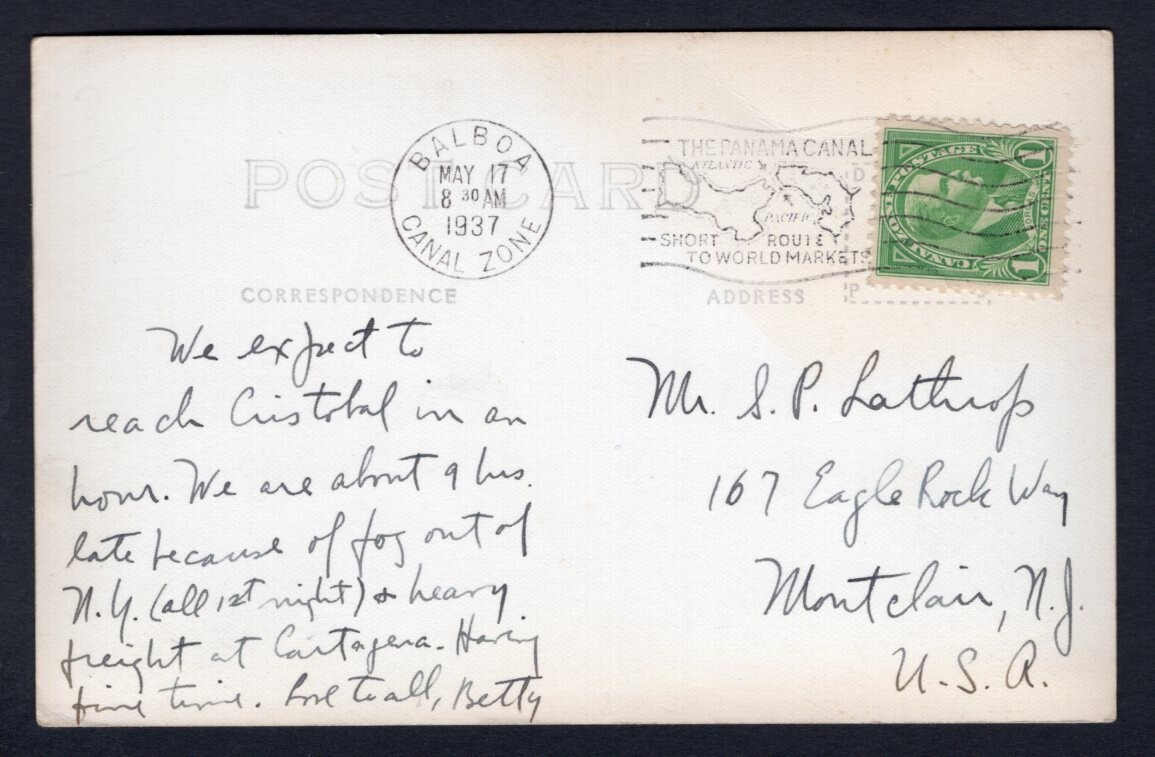 POST CARD
BALBOA
MAY 17
8 30 AM
1937
CANAL ZONE
THE PANAMA CANAL
ATLANTIC
PACIFIC
SHORT ROUTE
TO WORLD MARKETS
CANAL ZONE POSTAGE
1 1
CORRESPONDENCE
ADDRESS
We expect to
reach Cristobal in an
hour. We are about 9 hrs.
late because of fog out of
N.Y. (all 1st night) & heavy
freight at Cartagena. Having
fine time. Love to all, Betty
Mr. S. P. Lathrop
167 Eagle Rock Way
Montclair, N.J.
U.S.A.